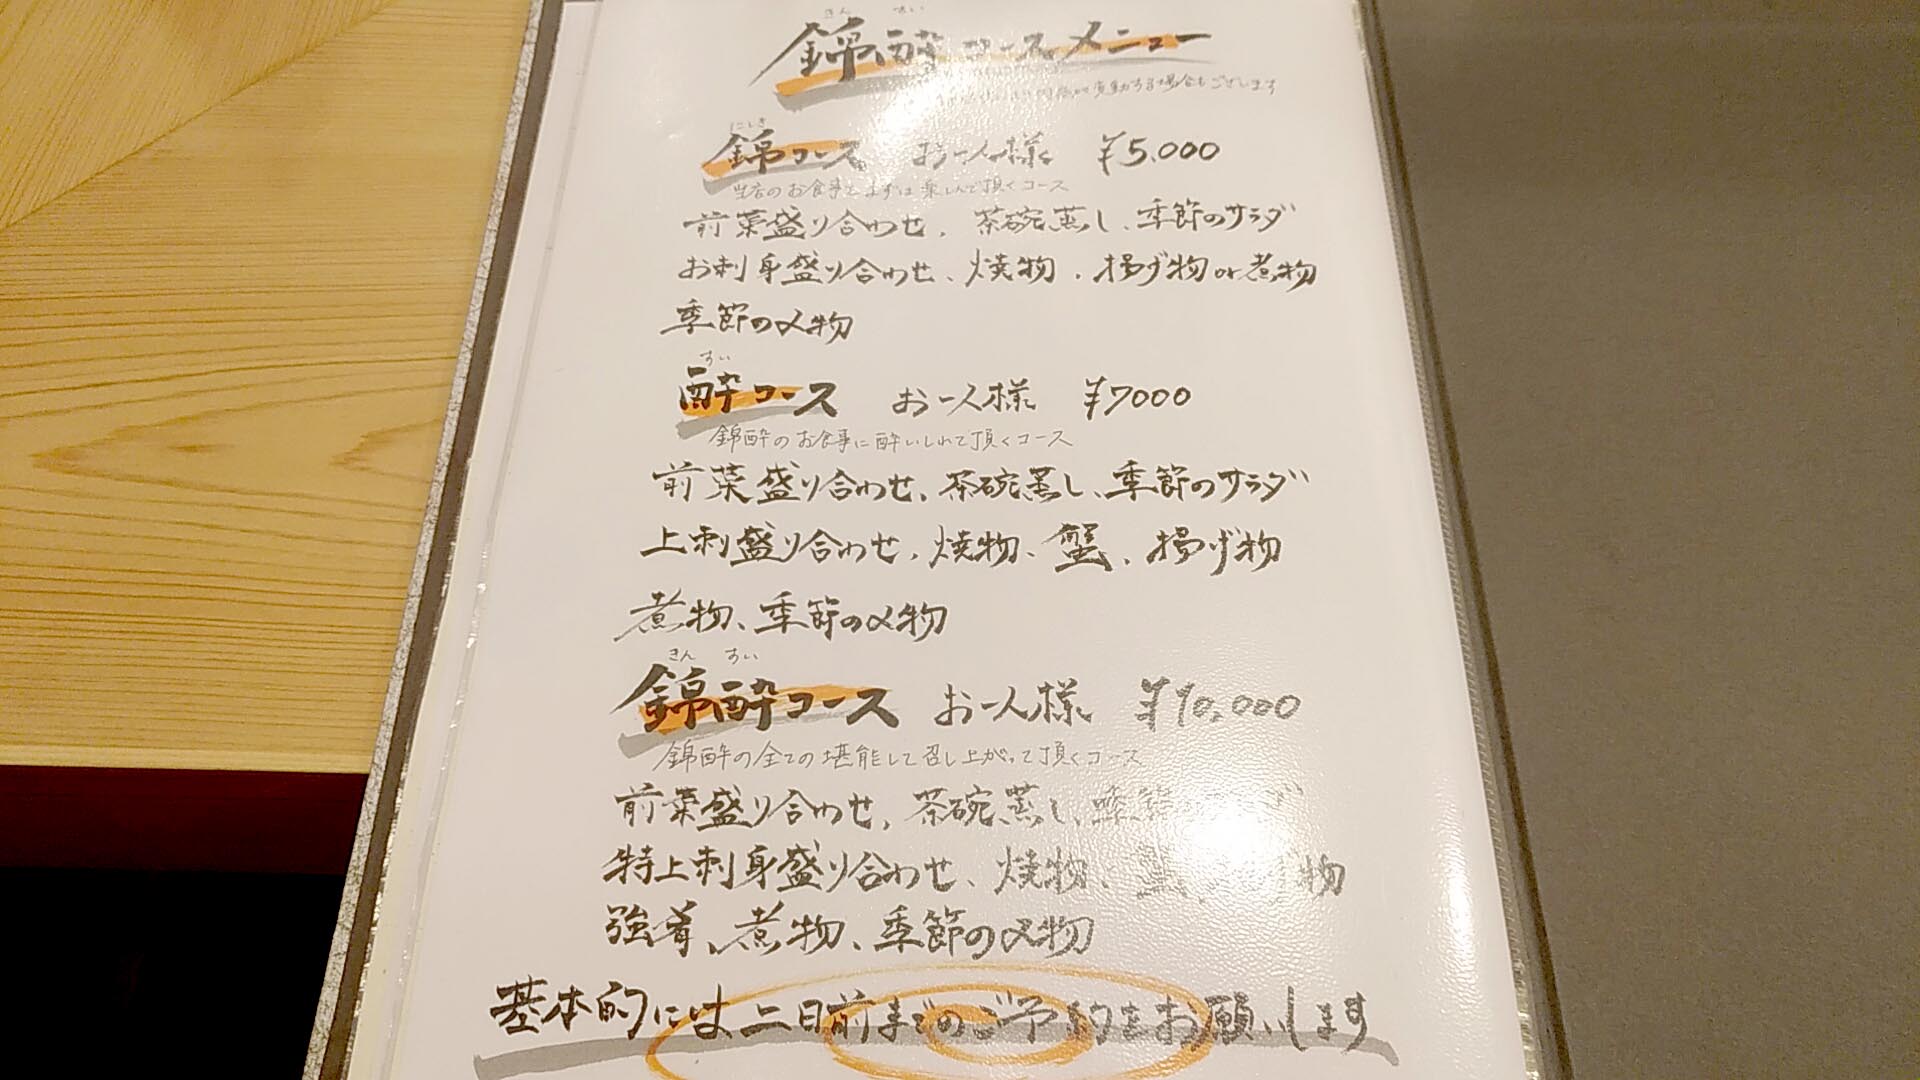 きん すい
錦酔コースメニュー
変動する場合もございます
にしき
錦コース お一人様 ¥5,000
当店のお食事をまずは楽しんで頂くコース
前菜盛り合わせ、茶碗蒸し、季節のサラダ
お刺身盛り合わせ、焼物、揚げ物or煮物
季節の〆物
すい
酔コース お一人様 ¥7000
錦酔のお食事に酔いしれて頂くコース
前菜盛り合わせ、茶碗蒸し、季節のサラダ
上刺盛り合わせ、焼物、蟹、揚げ物
煮物、季節の〆物
きん すい
錦酔コース お一人様 ¥10,000
錦酔の全ての堪能して召し上がって頂くコース
前菜盛り合わせ、茶碗蒸し、季節の
特上刺身盛り合わせ、焼物、物
強肴、煮物、季節の〆物
基本的には二日前までのご予約をお願いします